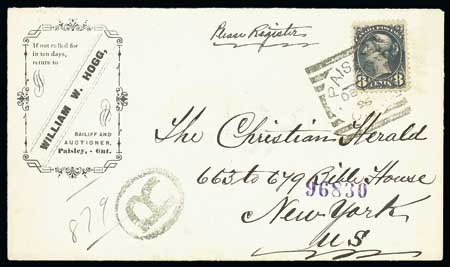 If not called for
in ten days,
return to
WILLIAM W. HOGG,
BAILIFF AND
AUCTIONER,
Paisley, - Ont.
Please Register
PAIS
96
8 CENTS 8
The Christian Herald
663 to 679 Bible House
96830
New York
U S
R
879